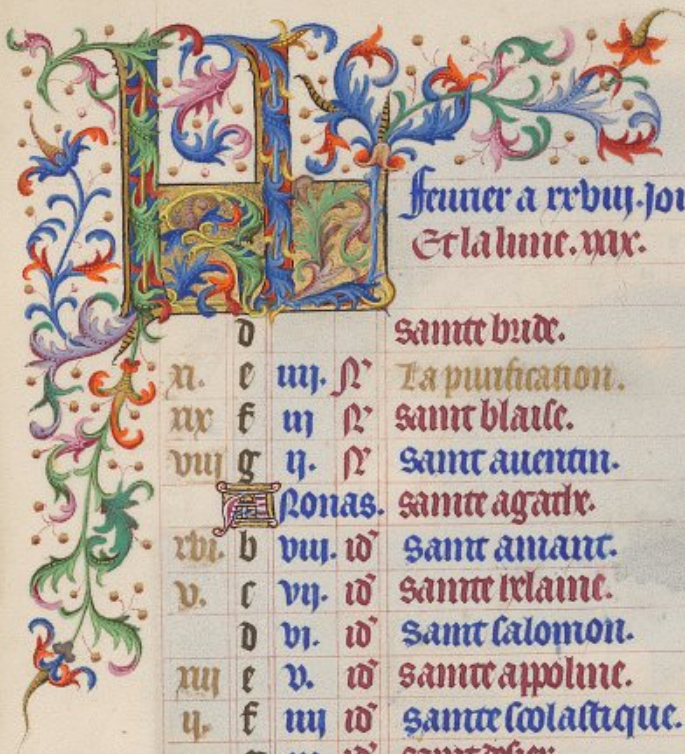 KL
feurier a xxviii. jou
Et la lune. xxix.
d sainte bride.
xi. e iiij. N La purification.
xix f iij N saint blaise.
viij g ij. N saint auentin.
A Nonas. sainte agathe.
xvi. b viij. id saint amant.
v. c vij. id sainte relaine.
d vi. id saint salomon.
xiij e v. id sainte appoline.
ij. f iiij id sainte scolastique.
g iij id